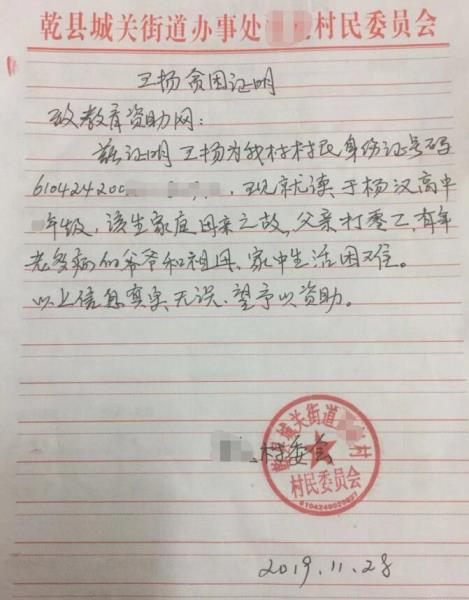 乾县城关街道办事处 村民委员会
王杨贫困证明
致教育资助网:
兹证明王杨为我村村民身份证号码
610424200 , 现就读于杨汉高中
年级, 该生家庭母亲亡故, 父亲打零工, 有年
老多病的爷爷和祖母、家中生活困难。
以上信息真实无误、望予以资助。
城关街道 村
村委会
村民委员会
2019.11.28